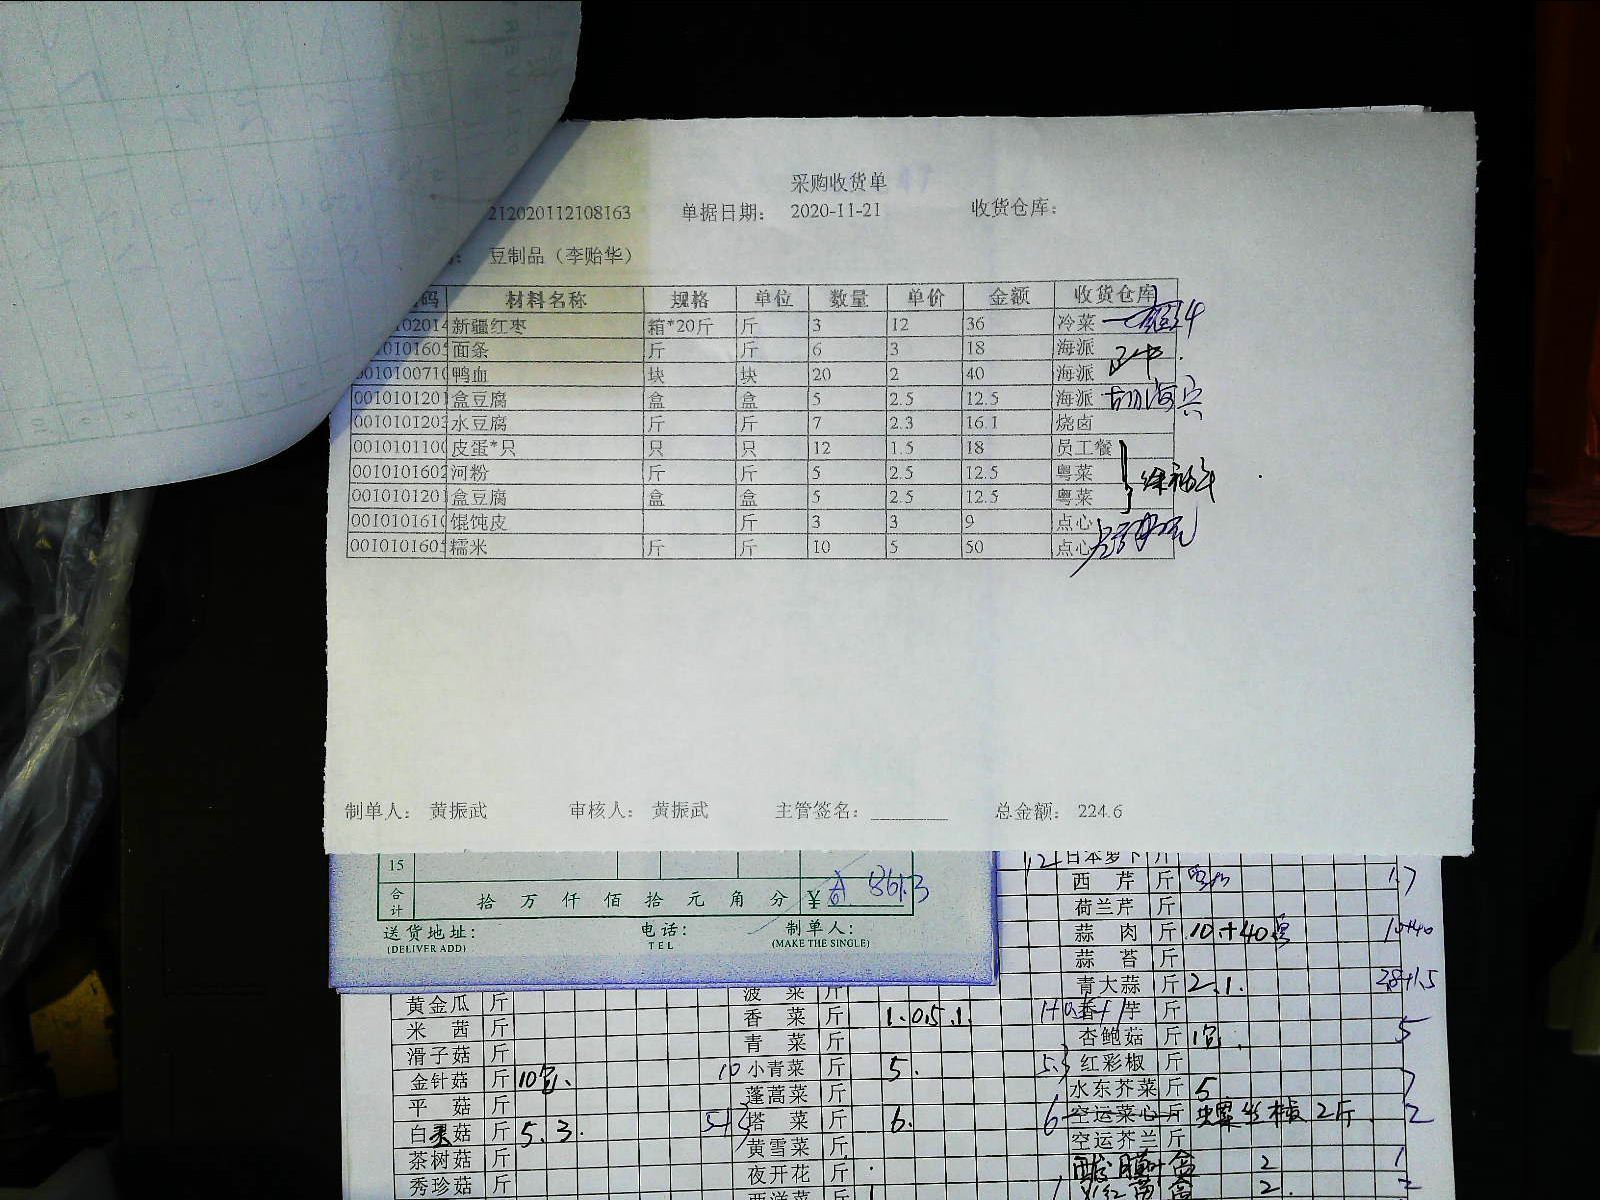 采购收货单
212020112108163 单据日期： 2020-11-21 收货仓库：
： 豆制品（李贻华）
码 材料名称 规格 单位 数量 单价 金额 收货仓库
10201 新疆红枣 箱*20斤 斤 3 12 36 冷菜
0010101605 面条 斤 斤 6 3 18 海派
0010100710 鸭血 块 块 20 2 40 海派
0010101201 盒豆腐 盒 盒 5 2.5 12.5 海派
0010101203 水豆腐 斤 斤 7 2.3 16.1 烧卤
0010101100 皮蛋*只 只 只 12 1.5 18 员工餐
0010101602 河粉 斤 斤 5 2.5 12.5 粤菜
0010101201 盒豆腐 盒 盒 5 2.5 12.5 粤菜
0010101610 馄饨皮 斤 3 3 9 点心
0010101605 糯米 斤 斤 10 5 50 点心
制单人： 黄振武 审核人： 黄振武 主管签名： 总金额： 224.6
15
合计 拾 万 仟 佰 拾 元 角 分 ¥ 861.3
送货地址： 电话： 制单人：
(DELIVER ADD) TEL (MAKE THE SINGLE)
12 日本萝卜 斤
西芹 斤 1.7
荷兰芹 斤
蒜肉 斤 10+40 10+40
蒜苔 斤
青大蒜 斤 2.1. 2.8+1.5
黄金瓜 斤 菠菜 斤
米茜 斤 香菜 斤 1.0.5.1. 香芋 斤
滑子菇 斤 青菜 斤 杏鲍菇 斤 5
金针菇 斤 10 10 小青菜 斤 5. 5.3 红彩椒 斤
平菇 斤 蓬蒿菜 斤 水东芥菜 斤 5 7
白灵菇 斤 5.3. 5+3 塔菜 斤 6. 6 空运菜心 斤 2斤 2
茶树菇 斤 黄雪菜 斤 空运芥兰 斤
秀珍菇 斤 夜开花 斤 盒 2 1
西洋菜 盒 2. 2